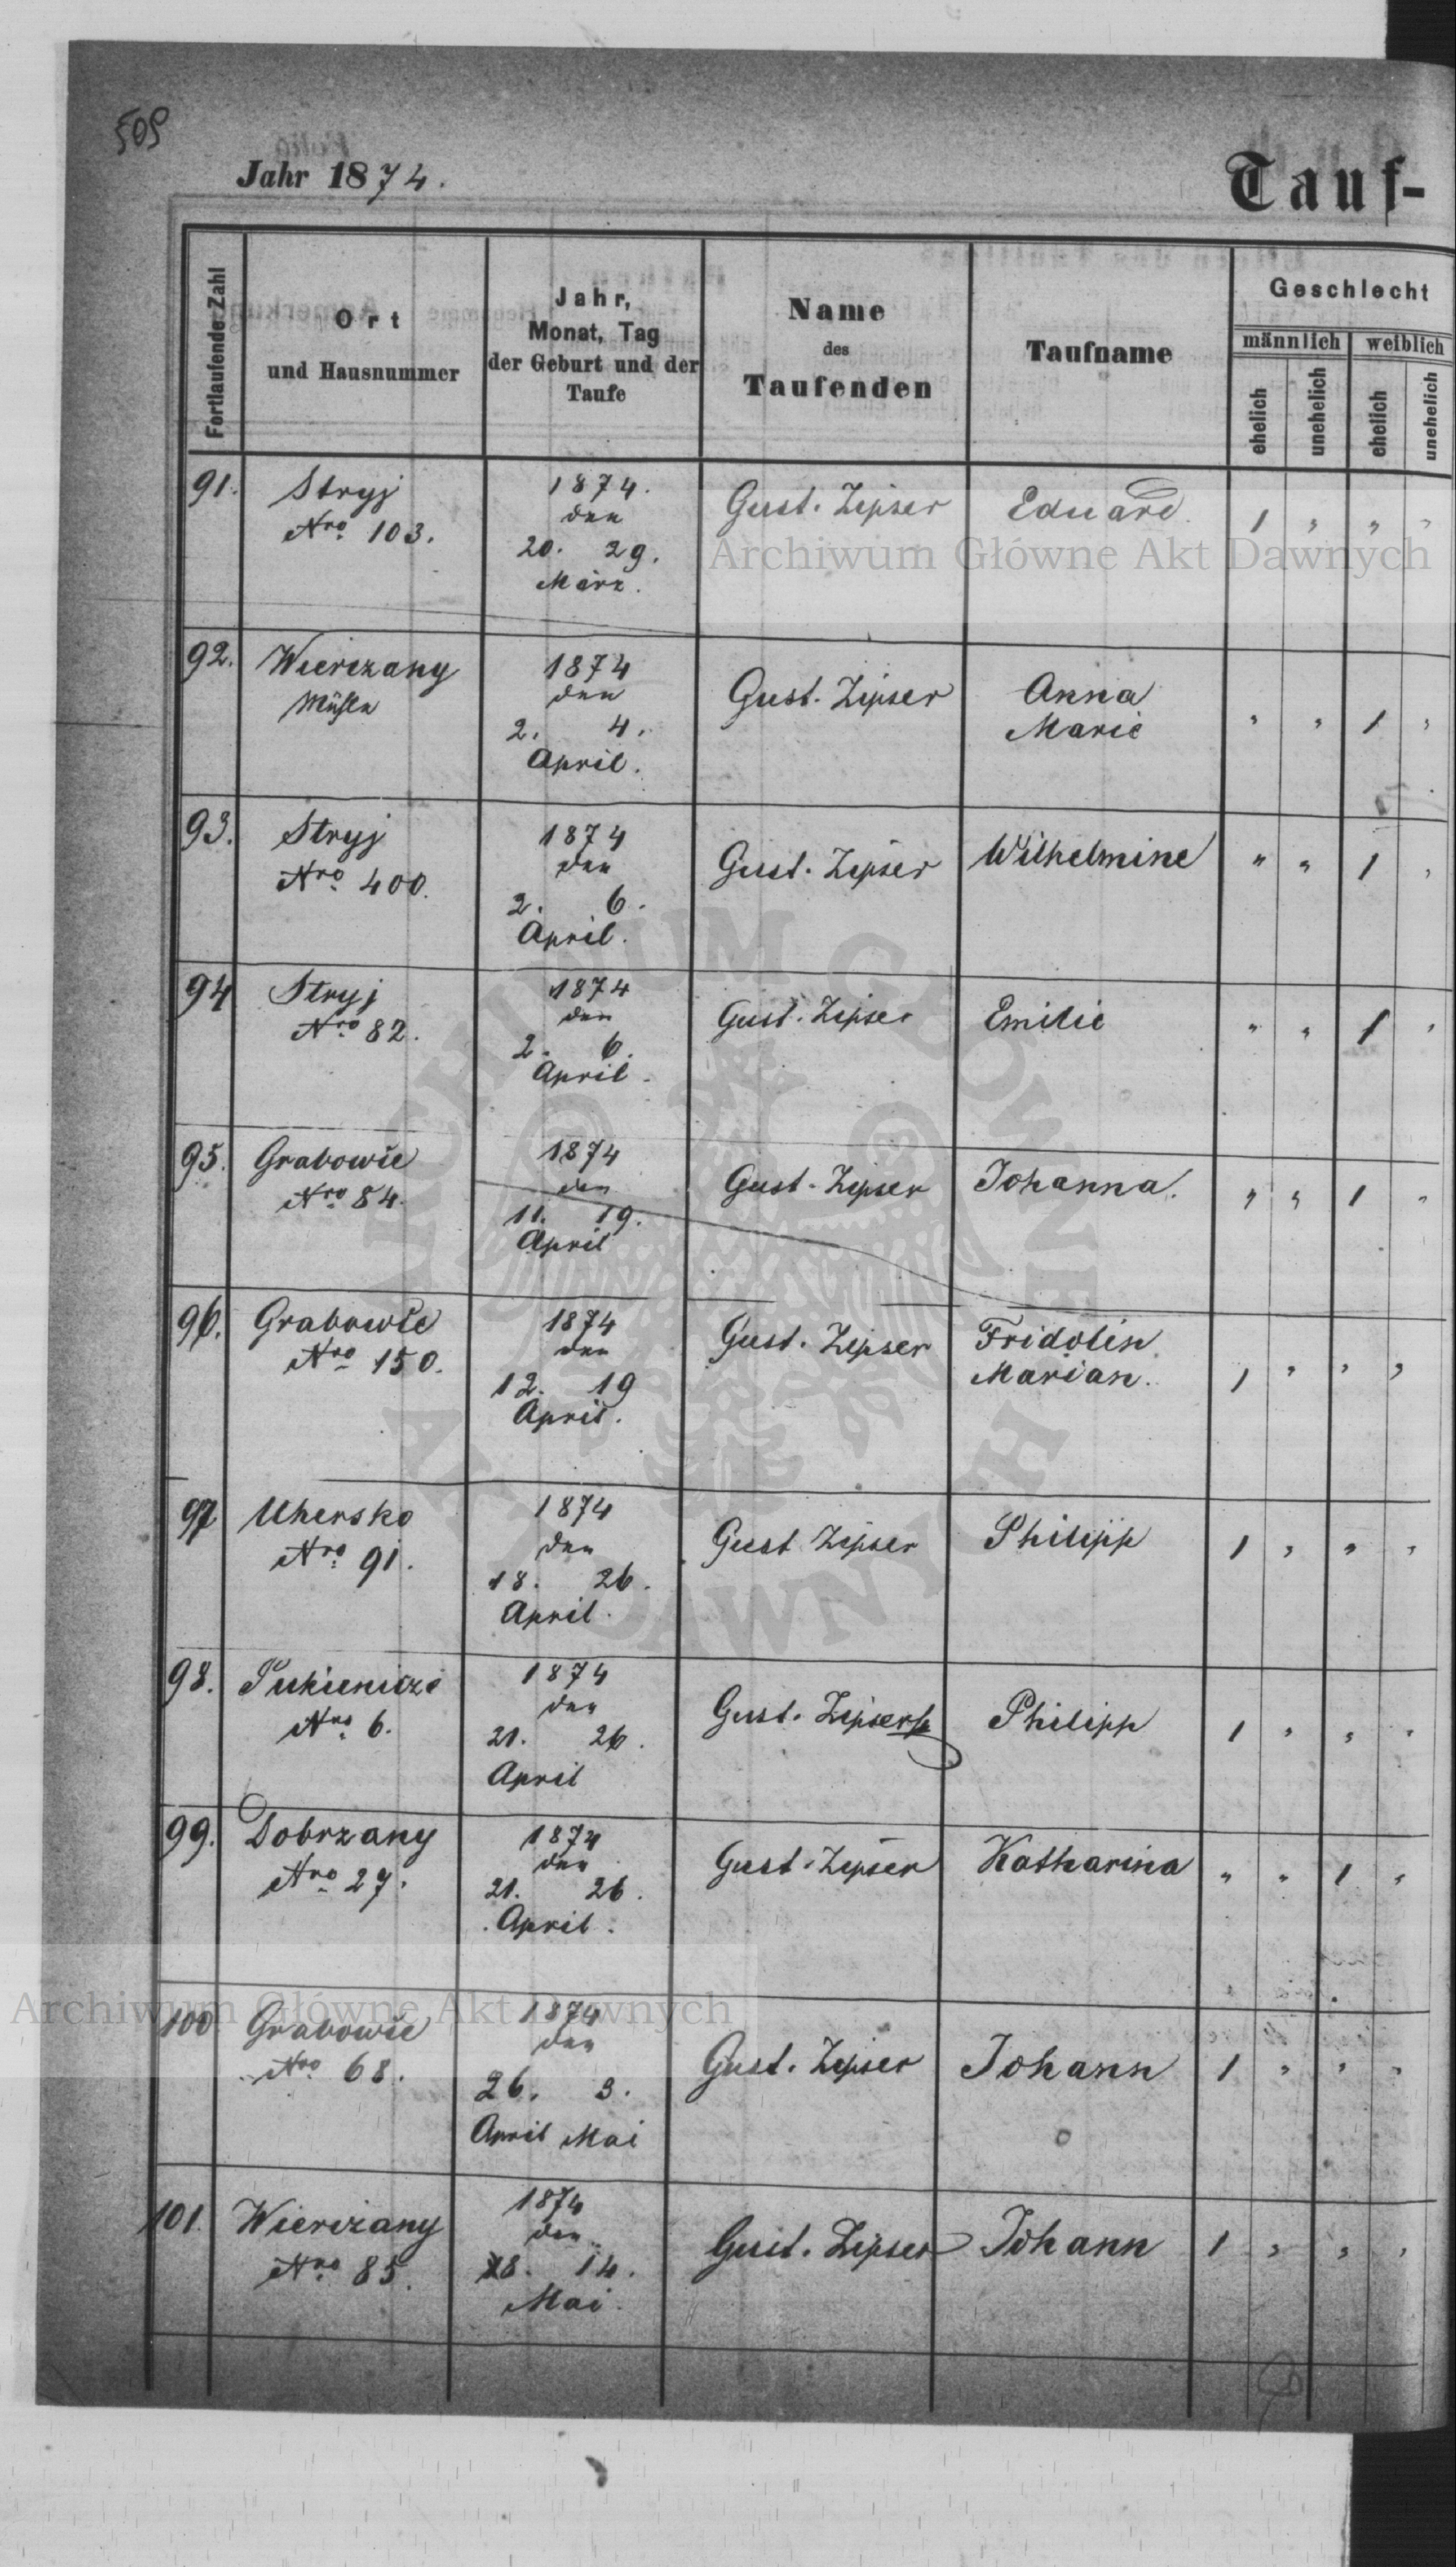 509
Jahr 1874.
Tauf-
Fortlaufende Zahl
Ort
und Hausnummer
Jahr,
Monat, Tag
der Geburt und der
Taufe
Name
des
Taufenden
Taufname
Geschlecht
männlich weiblich
ehelich unehelich ehelich unehelich
91. Stryj
Nro 103.
1874.
den
20. 29.
März.
Gust. Zipser Eduard 1 " " "
Archiwum Główne Akt Dawnych
92. Wierczany
Mühle
1874
den
2. 4.
April.
Gust. Zipser Anna
Marie " " 1 "
93. Stryj
Nro 400.
1874
den
2. 6.
April.
Gust. Zipser Wilhelmine " " 1 "
94 Stryj
Nro 82.
1874
den
2. 6.
April.
Gust. Zipser Emilie " " 1 "
95. Grabowce
Nro 84.
1874
den
11. 19.
April
Gust. Zipser Johanna. " " 1 "
96. Grabowce
Nro 150.
1874
den
12. 19
April.
Gust. Zipser Fridolin
Marian. 1 " " "
97 Uhersko
Nro 91.
1874
den
18. 26.
April.
Gust Zipser Philipp 1 " " "
98.
Nro 6.
1874
den
21. 26.
April
Gust. Zipser Philipp 1 " " "
99. Dobrzany
Nro 27.
1874
den
21. 26.
April.
Gust. Zipser Katharina " " 1 "
Archiwum Główne Akt Dawnych
100 Grabowce
Nro 68.
1874
den
26. 3.
April Mai
Gust. Zipser Johann 1 " " "
101. Wierczany
Nro 85.
1874
den
8. 14.
Mai.
Gust. Zipser Johann 1 " " "
ARCHIWUM GŁÓWNE
AKT DAWNYCH